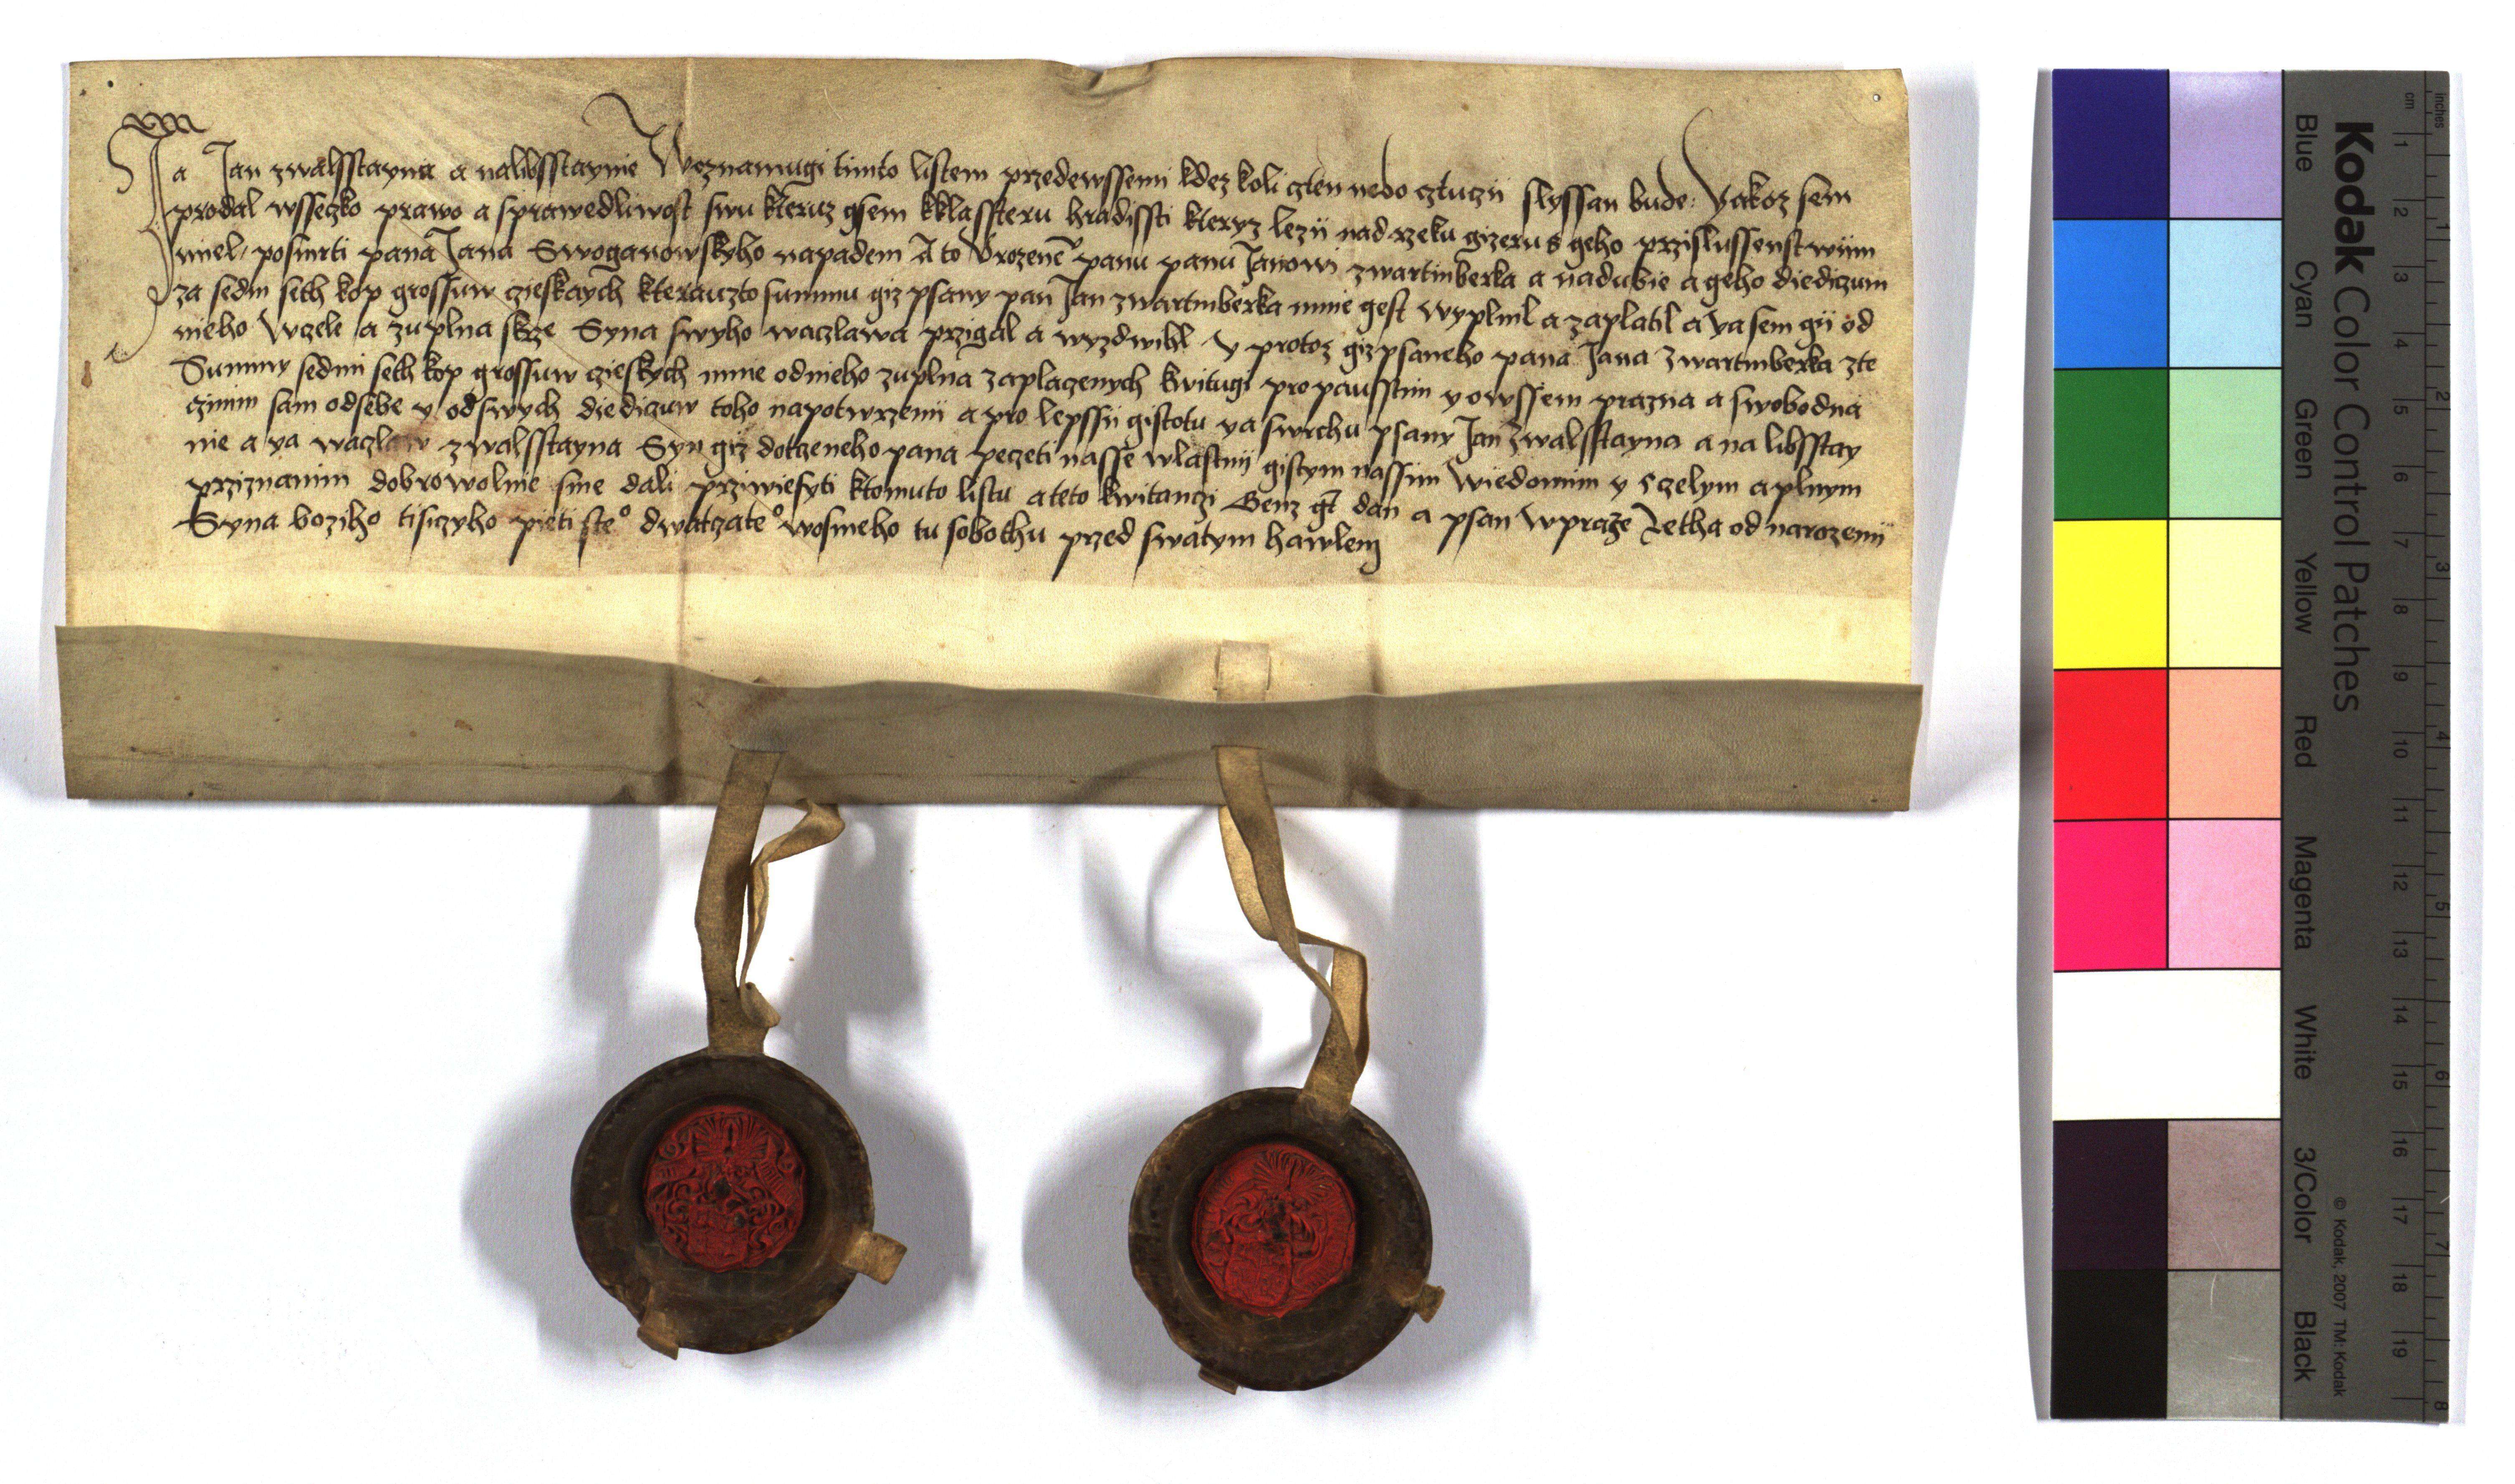 Ja Jan zwalsstayna a nalibsstaynie Woznamugi timto listem przedewssemi kdez koli czten nebo cztuczii slyssan bude: Yakoz sem
prodal wsseczko prawo a sprawedliwost swu kteruz gsem kklassteru hradissti kteryz lezii nad rzeku gizeru s geho przislussenstwiim
miel, posmrti pana Jana Swoganowskyho napadem A to Urozene° panu panu Janowi zwartmberka a nadubie a geho diediczum
za sedm seth kop grossuw czieskaych kterauzto summu giz psany pan Jan zwartmberka mnie gest wyplnil a zaplatil a ya sem gii od
nieho Wczele a zuplna skrze Syna swyho waczlawa przigal a wyzdwihl y protoz giz psaneho pana Jana zwartmberka zte
Summy sedmi seth kop grossuw czieskych mnie odnieho zuplna zaplaczenych kwitugi propausstim y owssem prazna a swobodna
czinim sam odsebe y od swych diediczuw toho napotwrzenii a pro lepssii gistotu ya swrchu psany Jan Zwalsstayna a na libsstay
nie a ya waczlaw zwalsstayna Syn giz dotczeneho pana peczeti nasse wlastnij gistym nassiim Wiedomim y sczelym aplnym
prziznanim dobrowolnie sme dali przwiesyti ktomuto listu ateto kwitanczi Genz gt dan a psan Wpraze Letha od narozenij
Syna boziho tisiczyho pietiste° dwatczate° wosmeho tu sobothu przed swatym hawlem
Kodak Color Control Patches
Blue Cyan Green Yellow Red Magenta White 3/Color Black
© Kodak, 2007 TM: Kodak
inches
cm
1 2 3 4 5 6 7 8
1 2 3 4 5 6 7 8 9 10 11 12 13 14 15 16 17 18 19